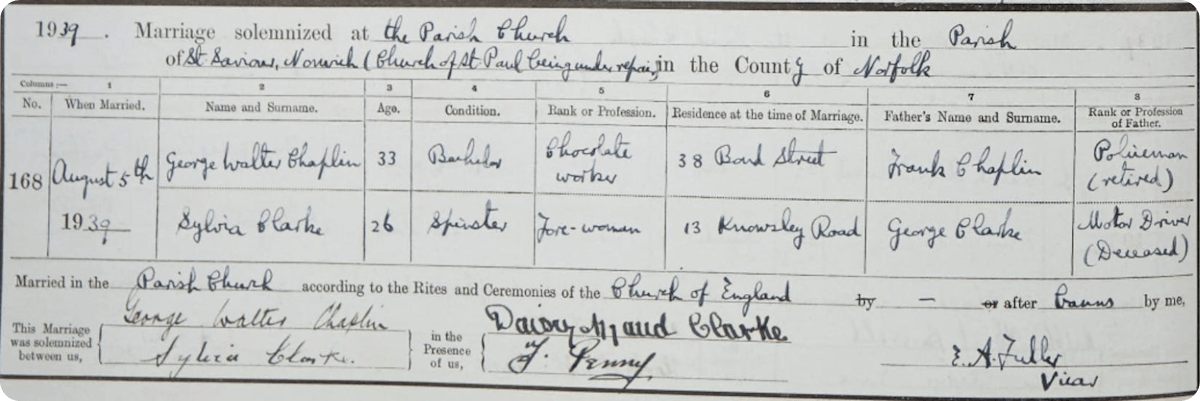 1939. Marriage solemnized at the Parish Church in the Parish
of St Saviour, Norwich (Church of St Paul being under repair) in the County of Norfolk
Columns:— 1 2 3 4 5 6 7 8
No. When Married. Name and Surname. Age. Condition. Rank or Profession. Residence at the time of Marriage. Father's Name and Surname. Rank or Profession of Father.
168 August 5th 1939 George Walter Chaplin 33 Bachelor Chocolate worker 38 Bond Street Frank Chaplin Policeman (retired)
Sylvia Clarke 26 Spinster Fore-woman 13 Knowsley Road George Clarke Motor Driver (Deceased)
Married in the Parish Church according to the Rites and Ceremonies of the Church of England by — or after Banns by me,
This Marriage was solemnized between us, George Walter Chaplin Sylvia Clarke. in the Presence of us, Daisy Maud Clarke F. Penny E. A. Fuller Vicar